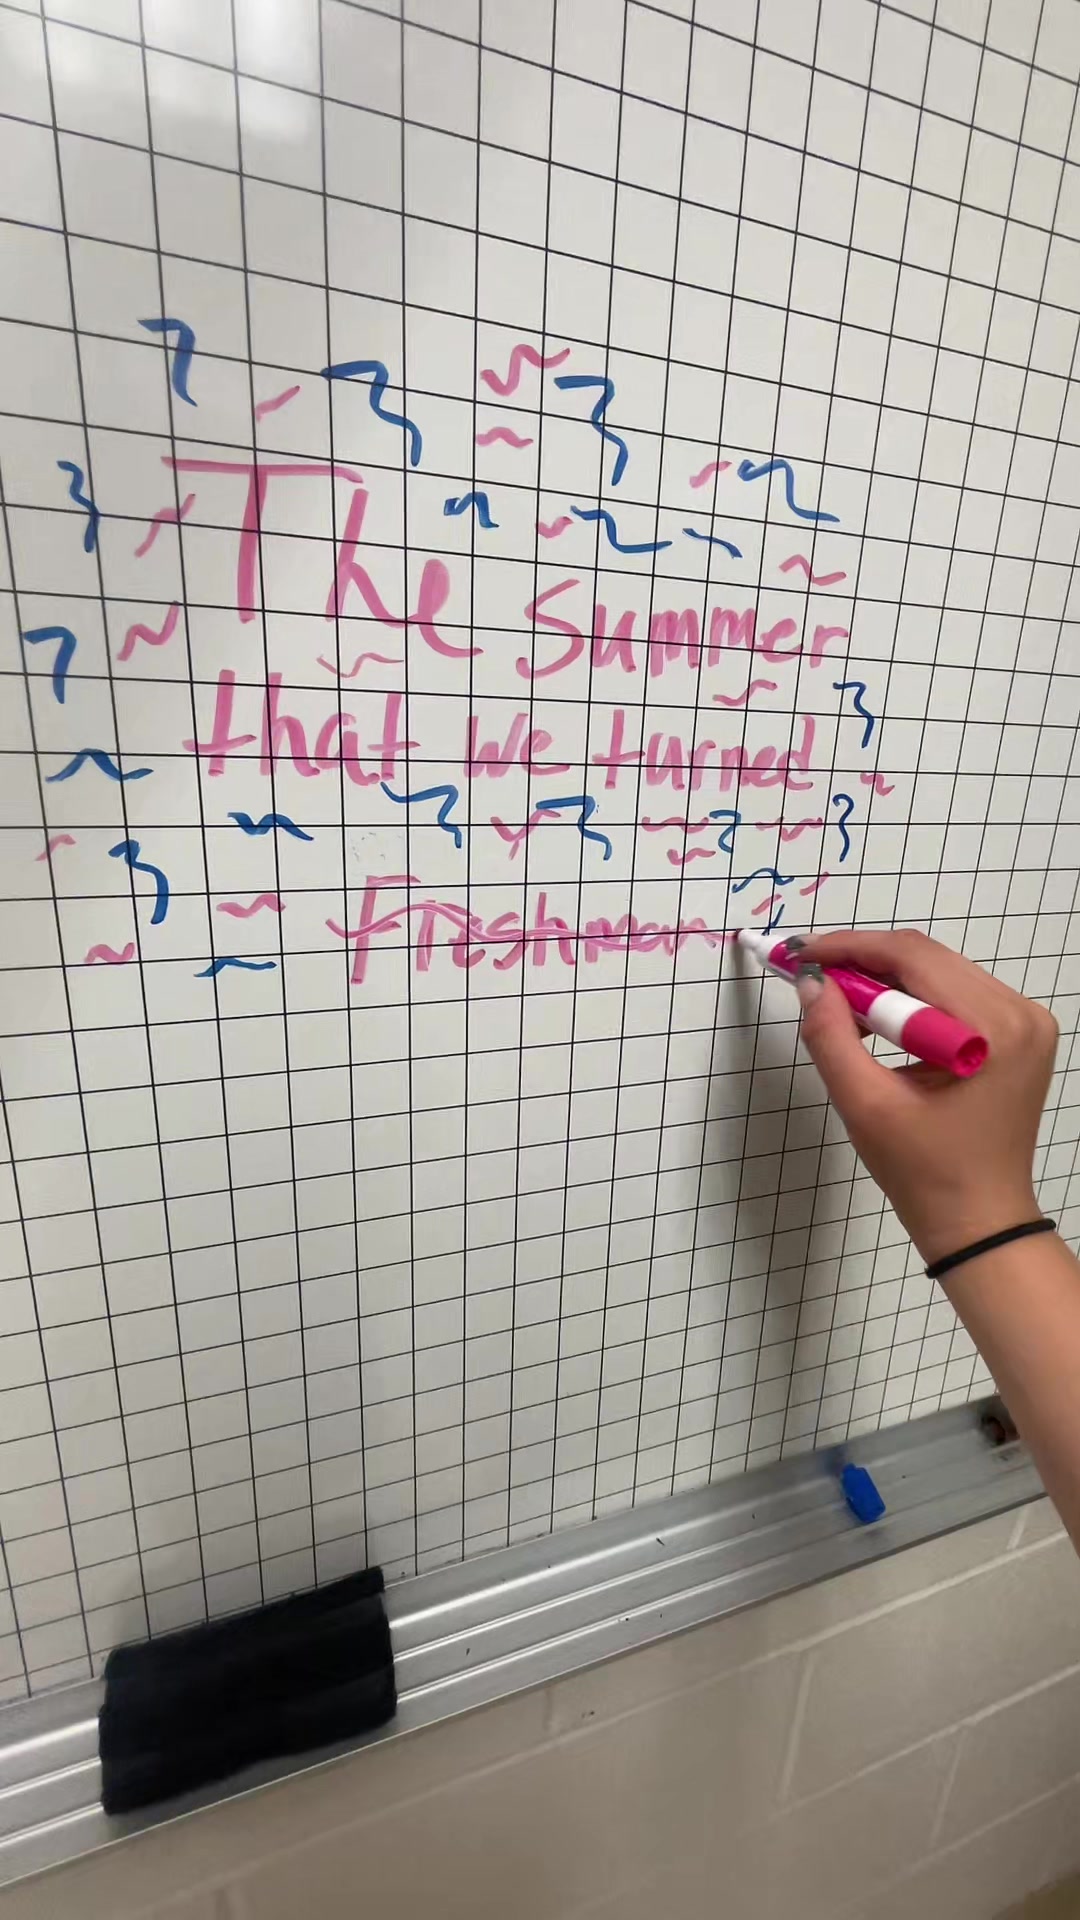 The Summer
that we turned
Freshman